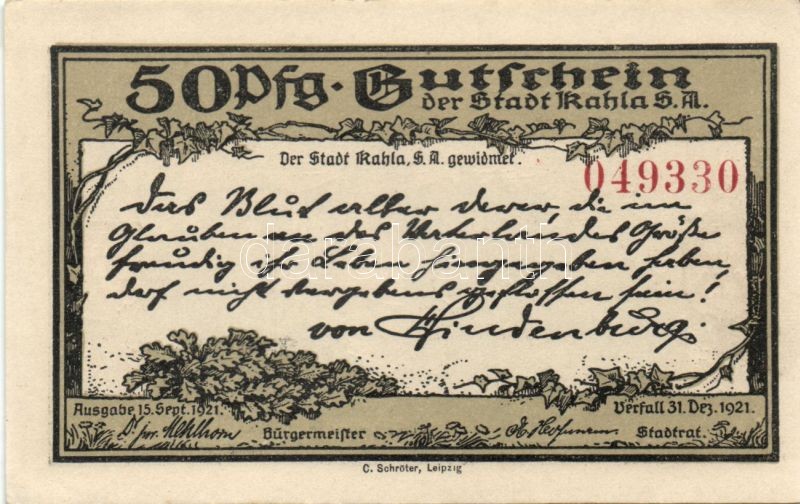 50 Pfg. Gutschein
der Stadt Kahla S.A.
Der Stadt Kahla, S.A. gewidmet.
049330
Das Blut aller derer, die im
Glauben an des Vaterlandes Größe
freudig ihr Leben hingegeben haben,
darf nicht vergebens geflossen sein!
von Hindenburg.
darabanth
Ausgabe 15. Sept. 1921.
Verfall 31. Dez. 1921.
Bürgermeister
Stadtrat.
C. Schröter, Leipzig